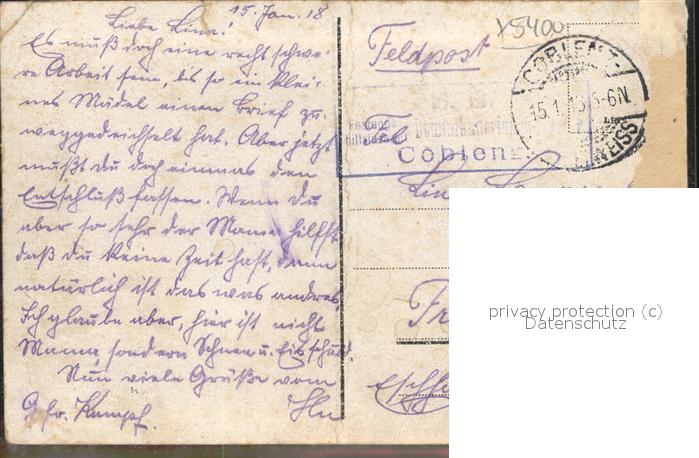 15. Jan. 18
Liebe Lina!
Es muß doch eine recht schwe-
re Arbeit sein, bis so ein klei-
nes Mädel einen Brief zu-
weggedeichselt hat. Aber jetzt
mußt du doch einmal den
Entschluß fassen. Wenn du
aber so sehr der Mama hilfst
daß du keine Zeit hast, dann
natürlich ist das was andres.
Ich glaube aber, hier ist nicht
Mama, sondern Schnee u. Eis schuld.
Nun viele Grüße vom
Gfr. Kampf.
x5400
Feldpost
S. B.
Festungs
Coblenz.
COBLENZ-
15.1.18.5-6N.
privacy protection (c)
Datenschutz